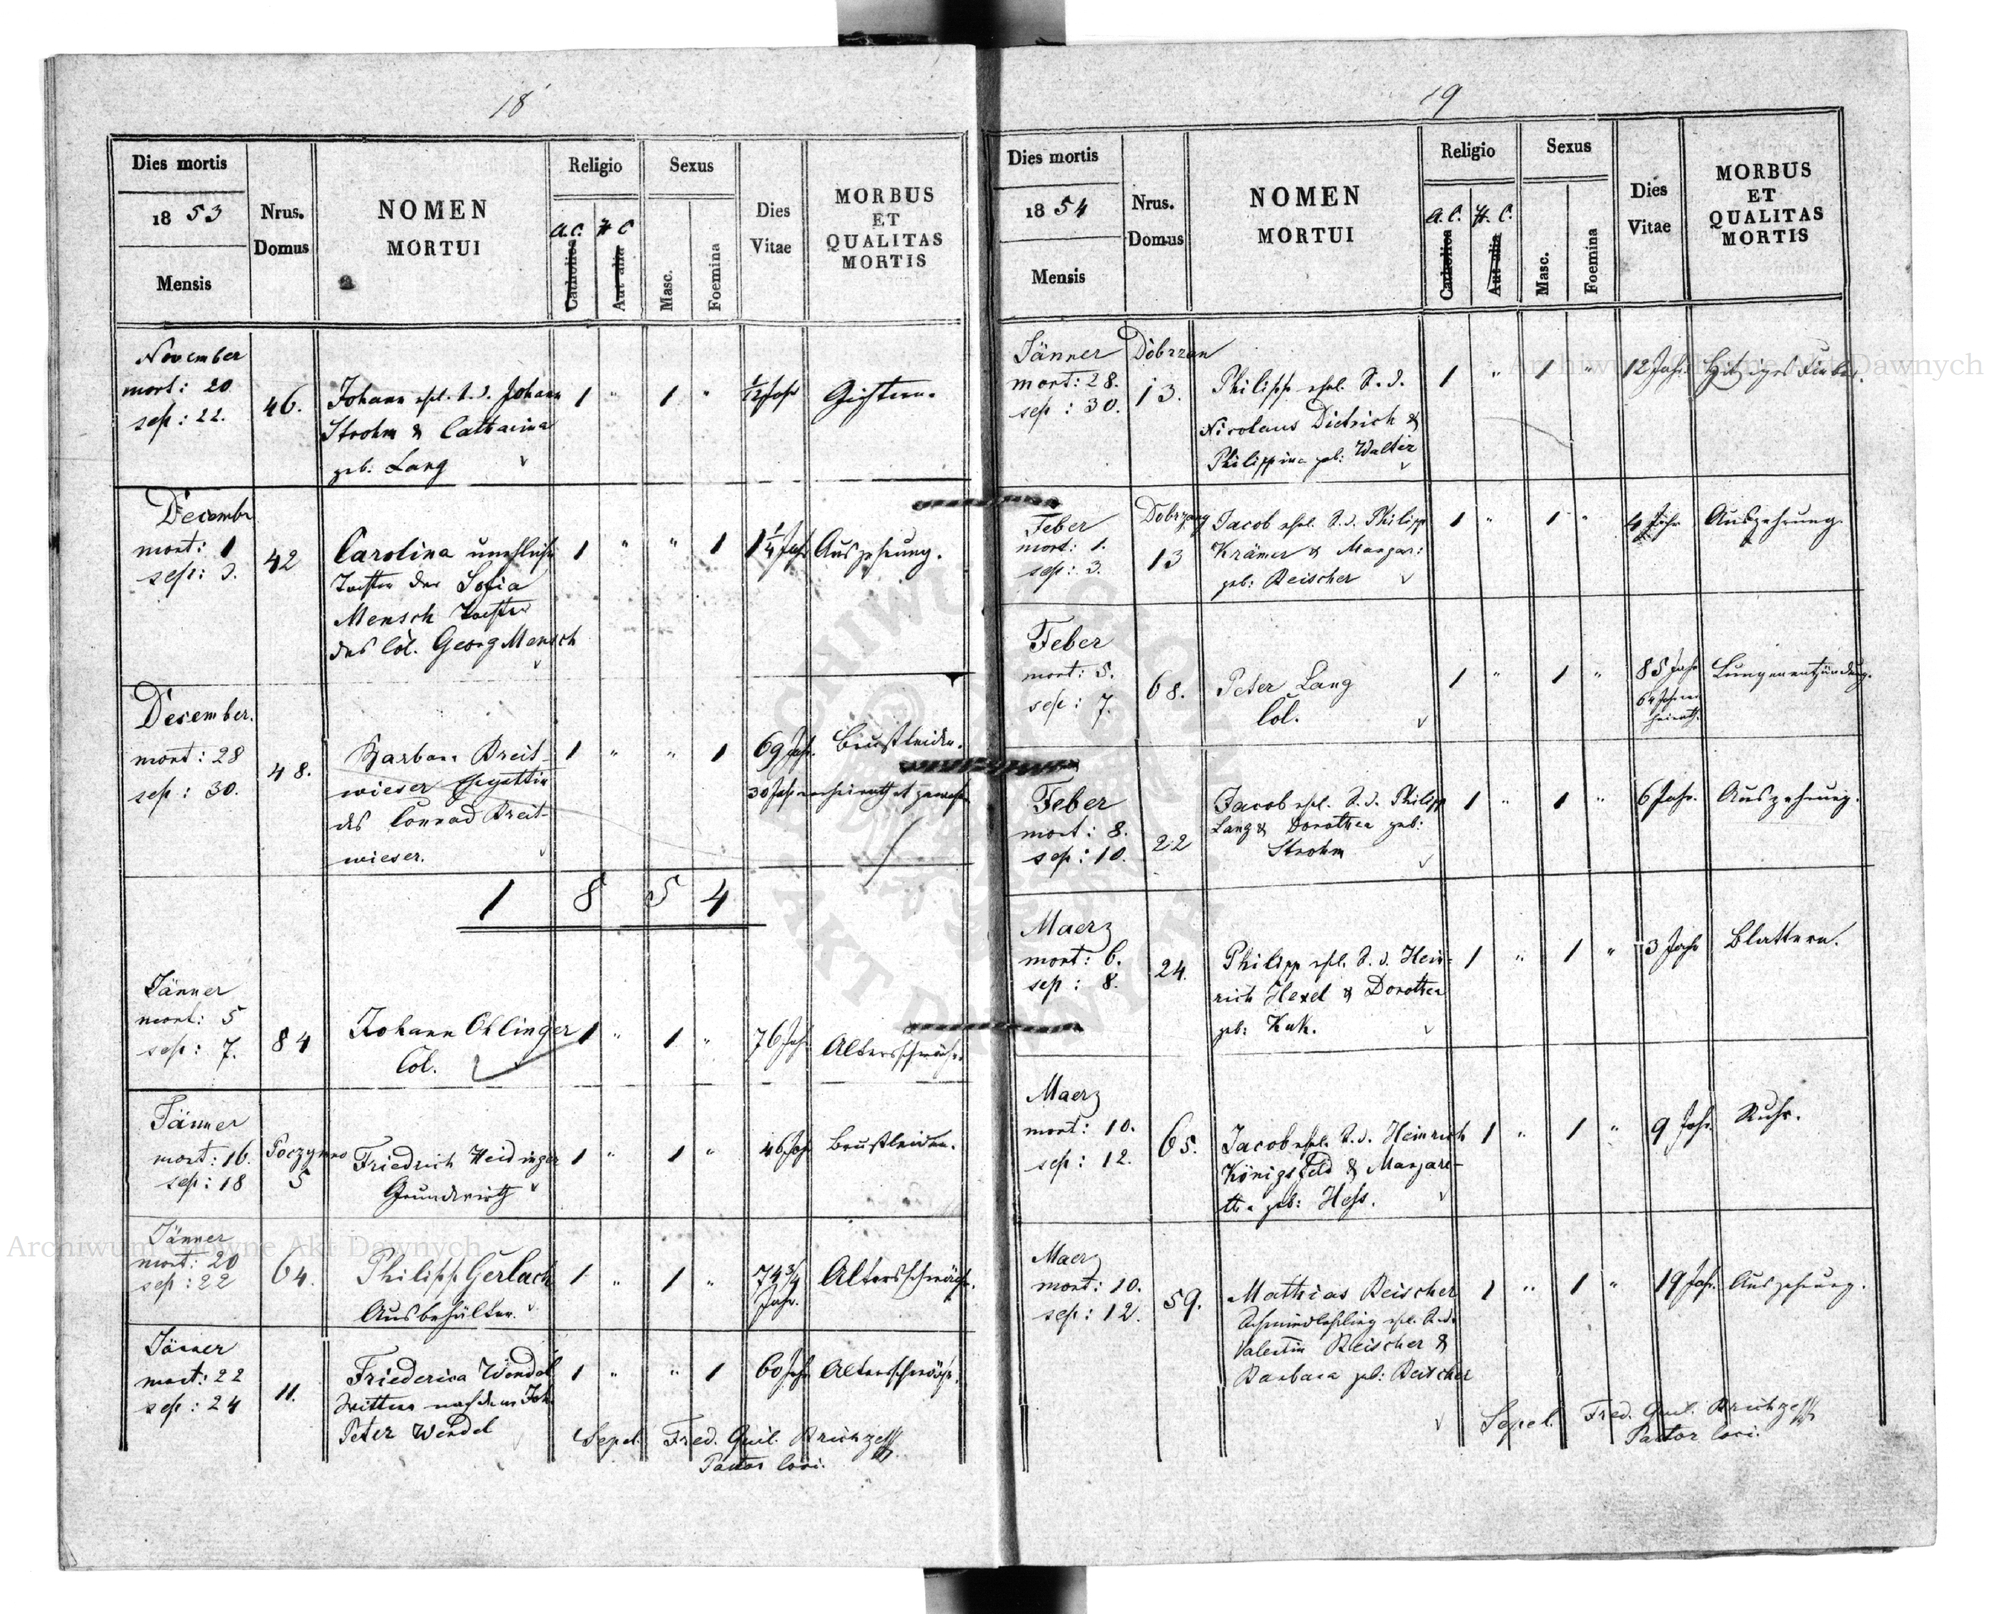 18
Dies mortis
1853
Mensis
Nrus.
Domus
NOMEN
MORTUI
Religio
A.C. H.C.
Catholica
Aut alia
Sexus
Masc.
Foemina
Dies
Vitae
MORBUS
ET
QUALITAS
MORTIS
November
mort: 20
sep: 22.
46.
Johann ehl. S. d. Johann
Strohm & Catharina
geb. Lang
1 " 1 "
1/2 Jahr
December
mort: 1
sep: 3.
42
Carolina unehliche
Tochter der Sofia
Mensch Tochter
des Col. Georg Mensch
1 " " 1
1 1/4 Jahr
Auszehrung.
December.
mort: 28
sep: 30.
48.
Barbara Breit-
wieser Ehegattin
des Conrad Breit-
wieser.
1 " " 1
69 Jahr.
30 Jahr verheirathet gewesen
Brustleiden.
1854
Jänner
mort: 5
sep: 7.
84
Johann Ohlinger
Col.
1 " 1 "
76 Jahr
Altersschwäche.
Jänner
mort: 16.
sep: 18
5
Friedrich Heidinger
Grundwirth
1 " 1 "
46 Jahr
Brustleiden.
Jänner
mort: 20
sep: 22
64.
Philipp Gerlach
Ausbehälter.
1 " 1 "
74 3/4
Jahr.
Altersschwäche.
Jänner
mort: 22
sep: 24
11.
Friederica Wendel
Wittwe nach dem Joh.
Peter Wendel
1 " " 1
60 Jahr
Altersschwäche.
Sepel. Fred. Guil.
Pastor loci.
19
Dies mortis
1854
Mensis
Nrus.
Domus
NOMEN
MORTUI
Religio
A.C. H.C.
Catholica
Aut alia
Sexus
Masc.
Foemina
Dies
Vitae
MORBUS
ET
QUALITAS
MORTIS
Jänner
mort: 28.
sep: 30.
Dobrzan
13.
Philipp ehl. S. d.
Nicolaus Dietrich &
Philippina geb: Walter
1 " 1 "
12 Jahr.
Hitziges Fieber.
Feber
mort: 1.
sep: 3.
Dobrzany
13
Jacob ehl. S. d. Philipp
Krämer & Margar:
geb: Reischer
1 " 1 "
4 Jahr
Auszehrung.
Feber
mort: 5.
sep: 7.
68.
Peter Lang
Col.
1 " 1 "
85 Jahr
Lungenentzündung.
Feber
mort: 8.
sep: 10.
22
Jacob ehl. S. d. Philipp
Lang & Dorothea geb:
Strohm
1 " 1 "
6 Jahr.
Auszehrung.
Maerz
mort: 6.
sep: 8.
24.
Philipp ehl. S. d. Hein-
rich Hexel & Dorothea
geb: Kuk.
1 " 1 "
3 Jahr
Blattern.
Maerz
mort: 10.
sep: 12.
65.
Jacob ehl. S. d. Heinrich
Königsfeld & Margare-
tha geb: Hess.
1 " 1 "
9 Jahr.
Ruhr.
Maerz
mort: 10.
sep: 12.
59.
Mathias Reischer
Schmiedlehrling ehl. S. d.
Valentin Reischer &
Barbara geb: Reischer
1 " 1 "
19 Jahr.
Auszehrung.
Sepel. Fred. Guil.
Pastor loci.
Archiwum Główne Akt Dawnych
Archiwum Główne Akt Dawnych